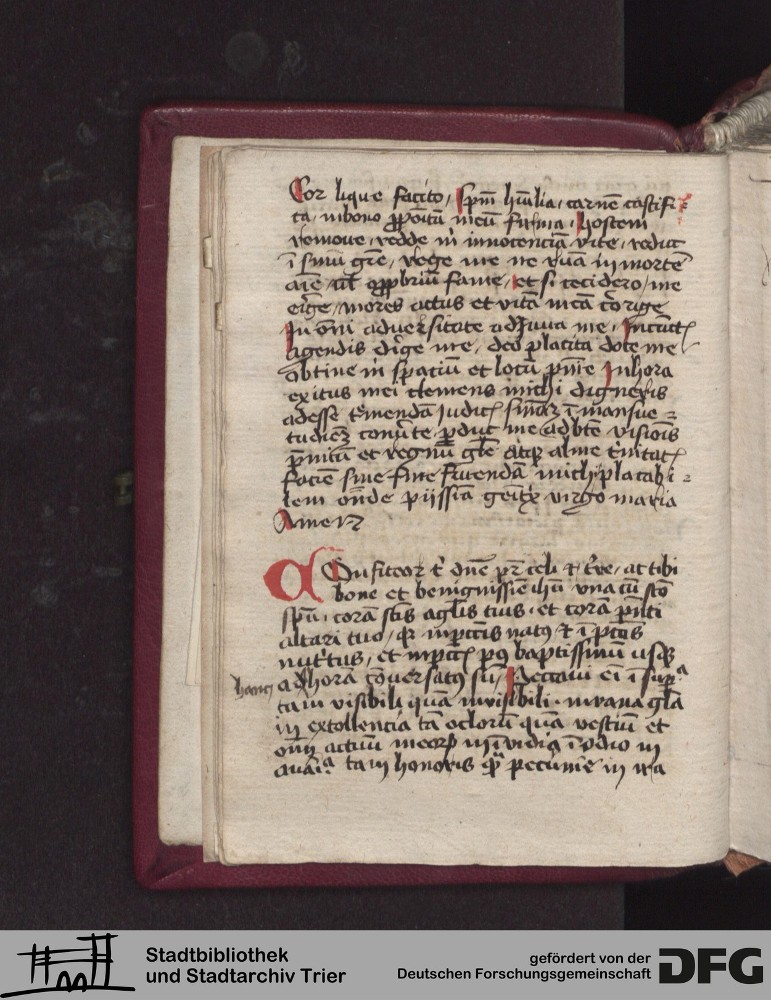 Cor lique facito, spm huilia, carnē castifi
ca, in bono ppositū meū firma, hostem
remoue, redde m innocenciā vite, reduc
ī sinū grē, rege me ne ruā in mortē
aīe, ul opprbriū fame, et si cecidero, me
erige, mores actus et vitā meā corrige
In oni aduersitate adiuua me, In cūct
agendis dirige me, deo placita doce me
obtine m spaciū et locū pnīe In hora
exitus mei clemens michi digneris
adesse tremendā Judic sniaz ī mansue
tudiez conuerte, perduc me ad bte visiois
pmiū et regnū glie atqz alme trinitat
faciē sine fine fruendā michi placabi
lem onde piissia genitx virgo maria
Amen
Confiteor t dne pr celi et tre, ac tibi
bone et benignissie ihu una cū sco
spu, corā scis aglis tuis, et corā pnti
altari tuo, qr in pccis natus et ī pctis
nutitus, et in pcct pg baptissimū usqz
hanc
ad horā cōuersatus su, Peccaui eī ī supa
tam visibili quā invisibili, in vana glā
in extollencia tā oclorū quā vestiū et
oim actiuū meorp in īvidia ī odio in
auaria tam honoris q pecunie in ira
Stadtbibliothek
und Stadtarchiv Trier
gefördert von der
Deutschen Forschungsgemeinschaft
DFG